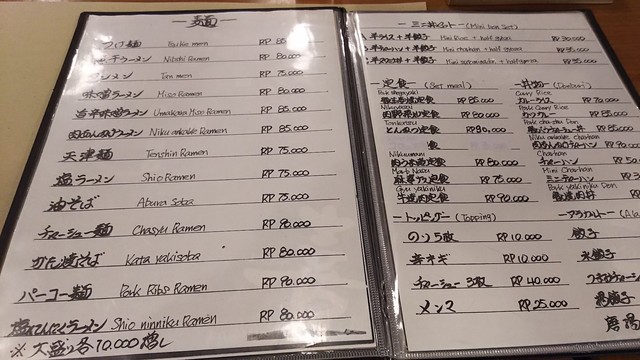 麺
つけ麺 Tsuke men RP 85
Niboshi Ramen RP 80.000
タンメン Tan men RP 75.000
味噌ラーメン Miso Ramen RP 80.000
旨辛味噌ラーメン Umakara Miso Ramen RP 85.000
肉あんかけラーメン Niku ankake Ramen RP 85.000
天津麺 Tenshin Ramen RP 75.000
塩ラーメン Shio Ramen RP 75.000
油そば Abura Soba RP 75.000
チャーシュー麺 Chasyu Ramen RP 90.000
かた焼そば Kata yakisoba RP 80.000
パーコー麺 Pork Ribs Ramen RP 90.000
塩にんにくラーメン Shio ninniku Ramen RP 80.000
※大盛り各10.000増し
ミニ丼セット (Mini Don Set)
半ライス + 半餃子 Mini Rice + half gyoza RP 30.000
半チャーハン + 半餃子 Mini chahan + half gyoza RP 55.000
Mini + half gyoza RP 55.000
定食 (Set meal)
Pork shogayaki
豚生姜焼定食 RP 85.000
肉野菜炒め定食 RP 80.000
Tonkatsu
とんかつ定食 RP 90.000
食
Nikumame
定食 RP 80.000
Mabo Nasu
麻婆ナス定食 RP 75.000
Gyu yakiniku
牛焼肉定食 RP 90.000
丼物 (Donburi)
Curry Rice
カレーライス RP 70.000
Pork Curry Rice
カツカレー RP 85.000
Pork cha-shu Don
豚バラチャーシュー丼 RP 85.000
Niku ankake chahan
肉あんかけチャーハン RP 90.000
Chahan
チャーハン RP 50
Mini Chahan
ミニチャーハン RP 3
Pork yakiniku Don
豚焼肉丼 RP
トッピング (Topping)
のり5枚 RP 10.000
RP 10.000
チャーシュー 3枚 RP 40.000
メンマ RP 25.000
アラカルト (Ala
餃子
水餃子